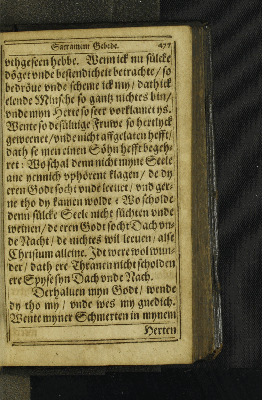 Sacrament Gebede. 477
vthgeseen hebbe. Wenn ick nu sülcke
döget vnde bestendicheit betrachte / so
bedröue vnde scheme ick my / dath ick
elende Minsche so gantz nichtes bin /
vnde myn Herte so seer vorklamet ys.
Wente so desüluige Fruwe so hertlyck
geweenet / vnde nicht affgelaten hefft /
dath se men einen Söhn hefft begeh-
ret : Wo schal denn nicht myne Seele
ane yennich vphörent klagen / de dy
eren Godt socht vnde leeuet / vnd ger-
ne tho dy kamen wolde : Wo scholde
denn sülcke Seele nicht süchten vnde
weinen / de eren Godt socht Dach vn-
de Nacht / de nichtes wil leeuen / alse
Christum alleine. Idt were wol wun-
der / dath ere Thranen nicht scholden
ere Spyse syn Dach vnde Nach.
Derhaluen myn Godt / wende
dy tho my / vnde wes my gnedich.
Wente myner Schmerten in mynem
Herten